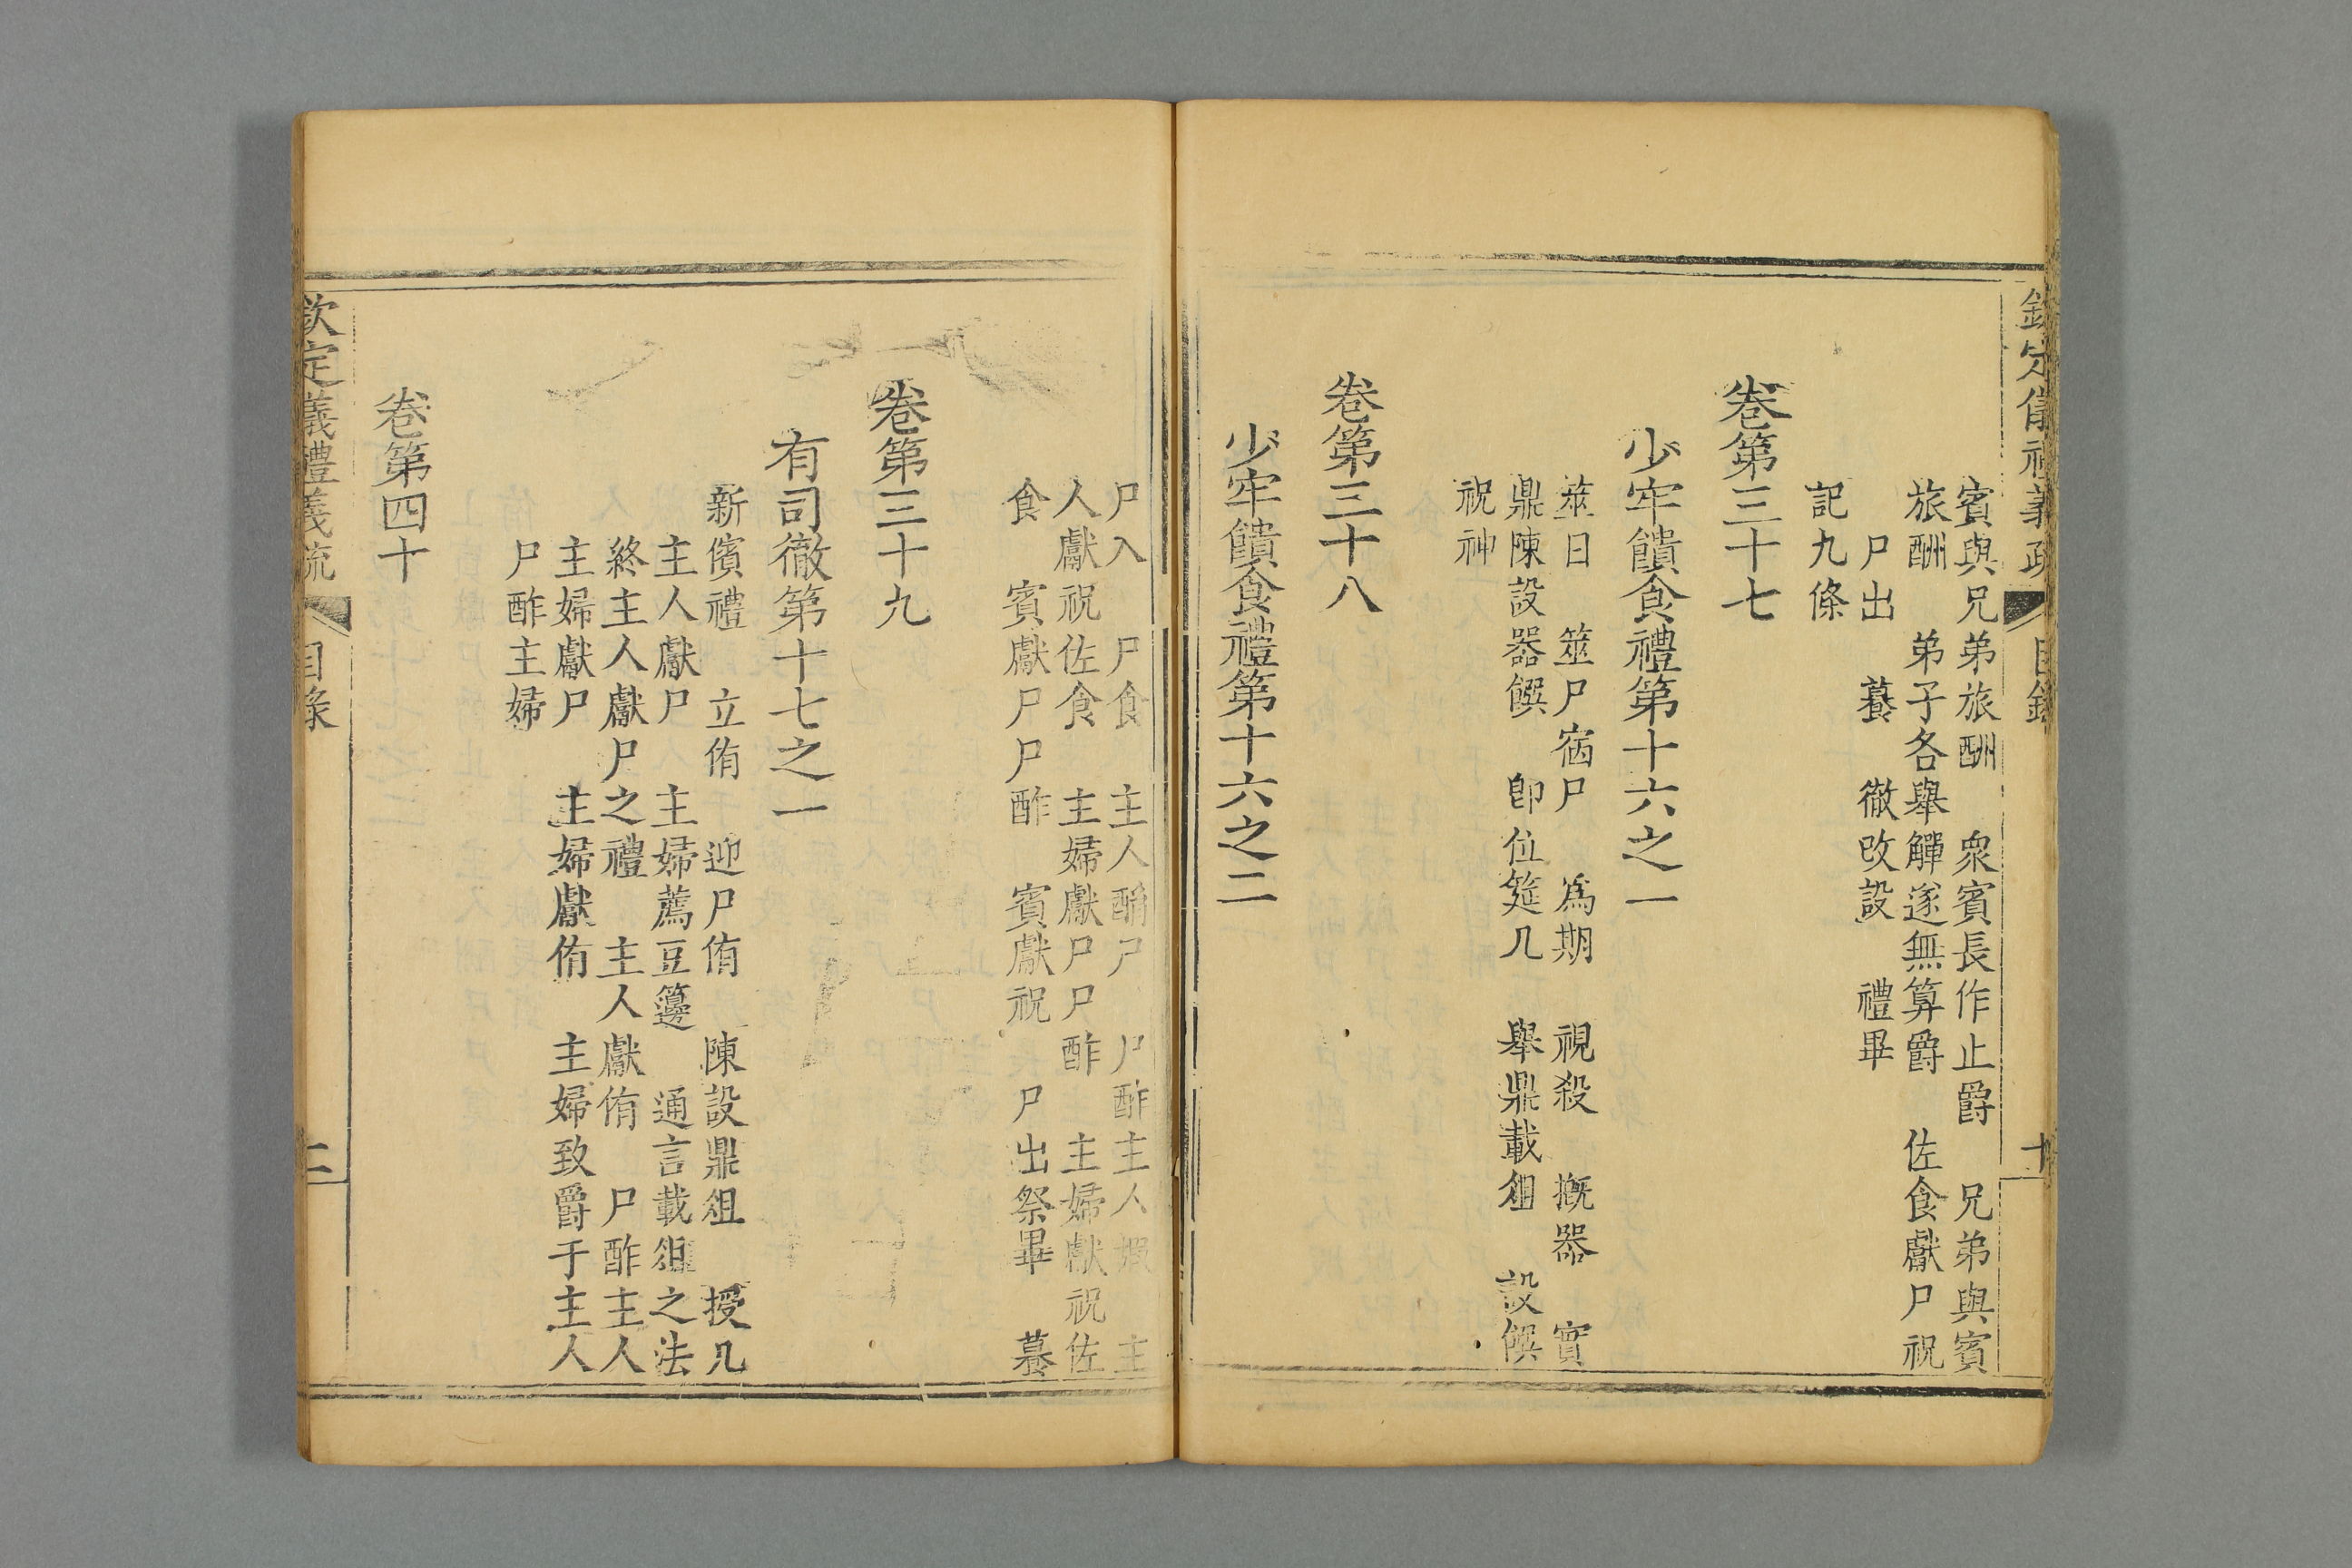 欽定儀禮義疏 目錄 十
賓與兄弟旅酬 衆賓長作止爵 兄弟與賓
旅酬 弟子各舉觶遂無算爵 佐食獻尸祝
尸出 餕 徹改設 禮畢
記九條
卷第三十七
少牢饋食禮第十六之一
筮日 筮尸宿尸 爲期 視殺 摡器 實
鼎陳設器饌 卽位筵几 舉鼎載俎 設饌
祝神
卷第三十八
少牢饋食禮第十六之二
尸入 尸食 主人酳尸 尸酢主人嘏 主
人獻祝佐食 主婦獻尸尸酢 主婦獻祝佐
食 賓獻尸尸酢 賓獻祝 尸出祭畢 餕
卷第三十九
有司徹第十七之一
新儐禮 立侑 迎尸侑 陳設鼎俎 授几
主人獻尸 主婦薦豆籩 通言載俎之法
終主人獻尸之禮 主人獻侑 尸酢主人
主婦獻尸 主婦獻侑 主婦致爵于主人
尸酢主婦
卷第四十
欽定儀禮義疏 目錄